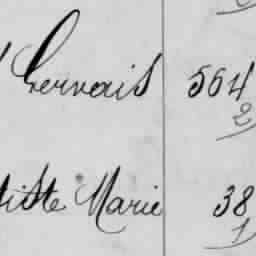 Gervais 564
2
tiste Marie 38
1